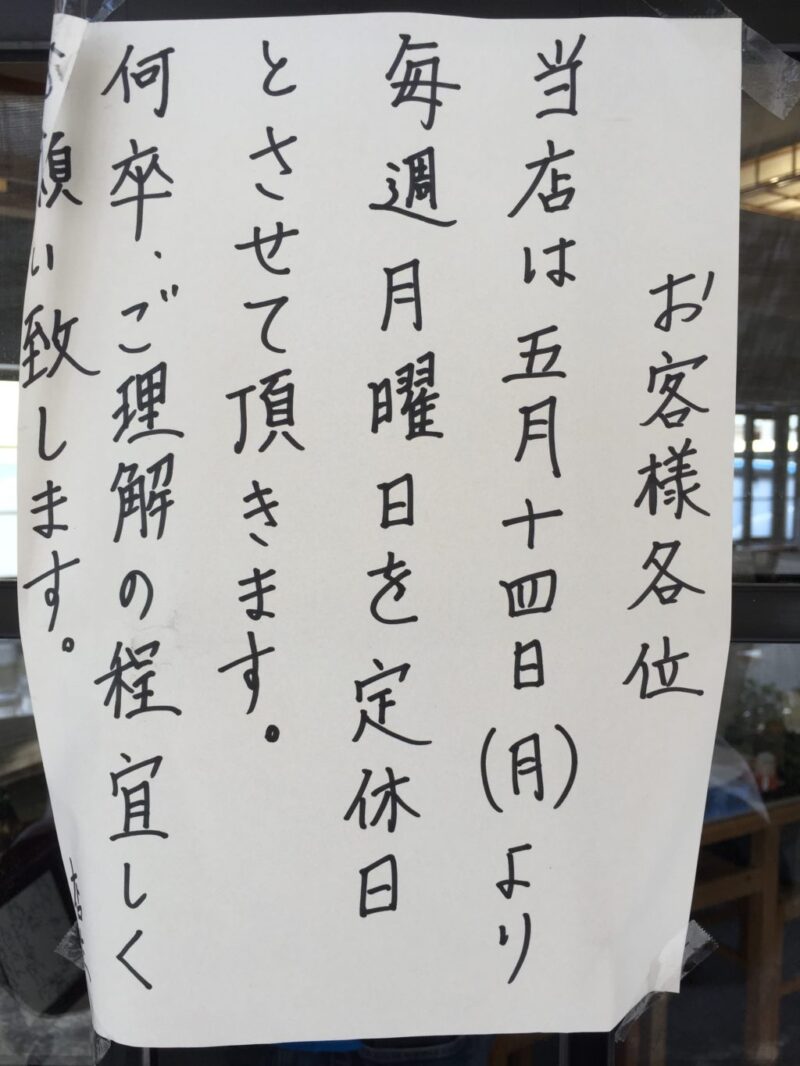 お客様各位
当店は五月十四日(月)より
毎週月曜日を定休日
とさせて頂きます。
何卒、ご理解の程宜しく
お願い致します。